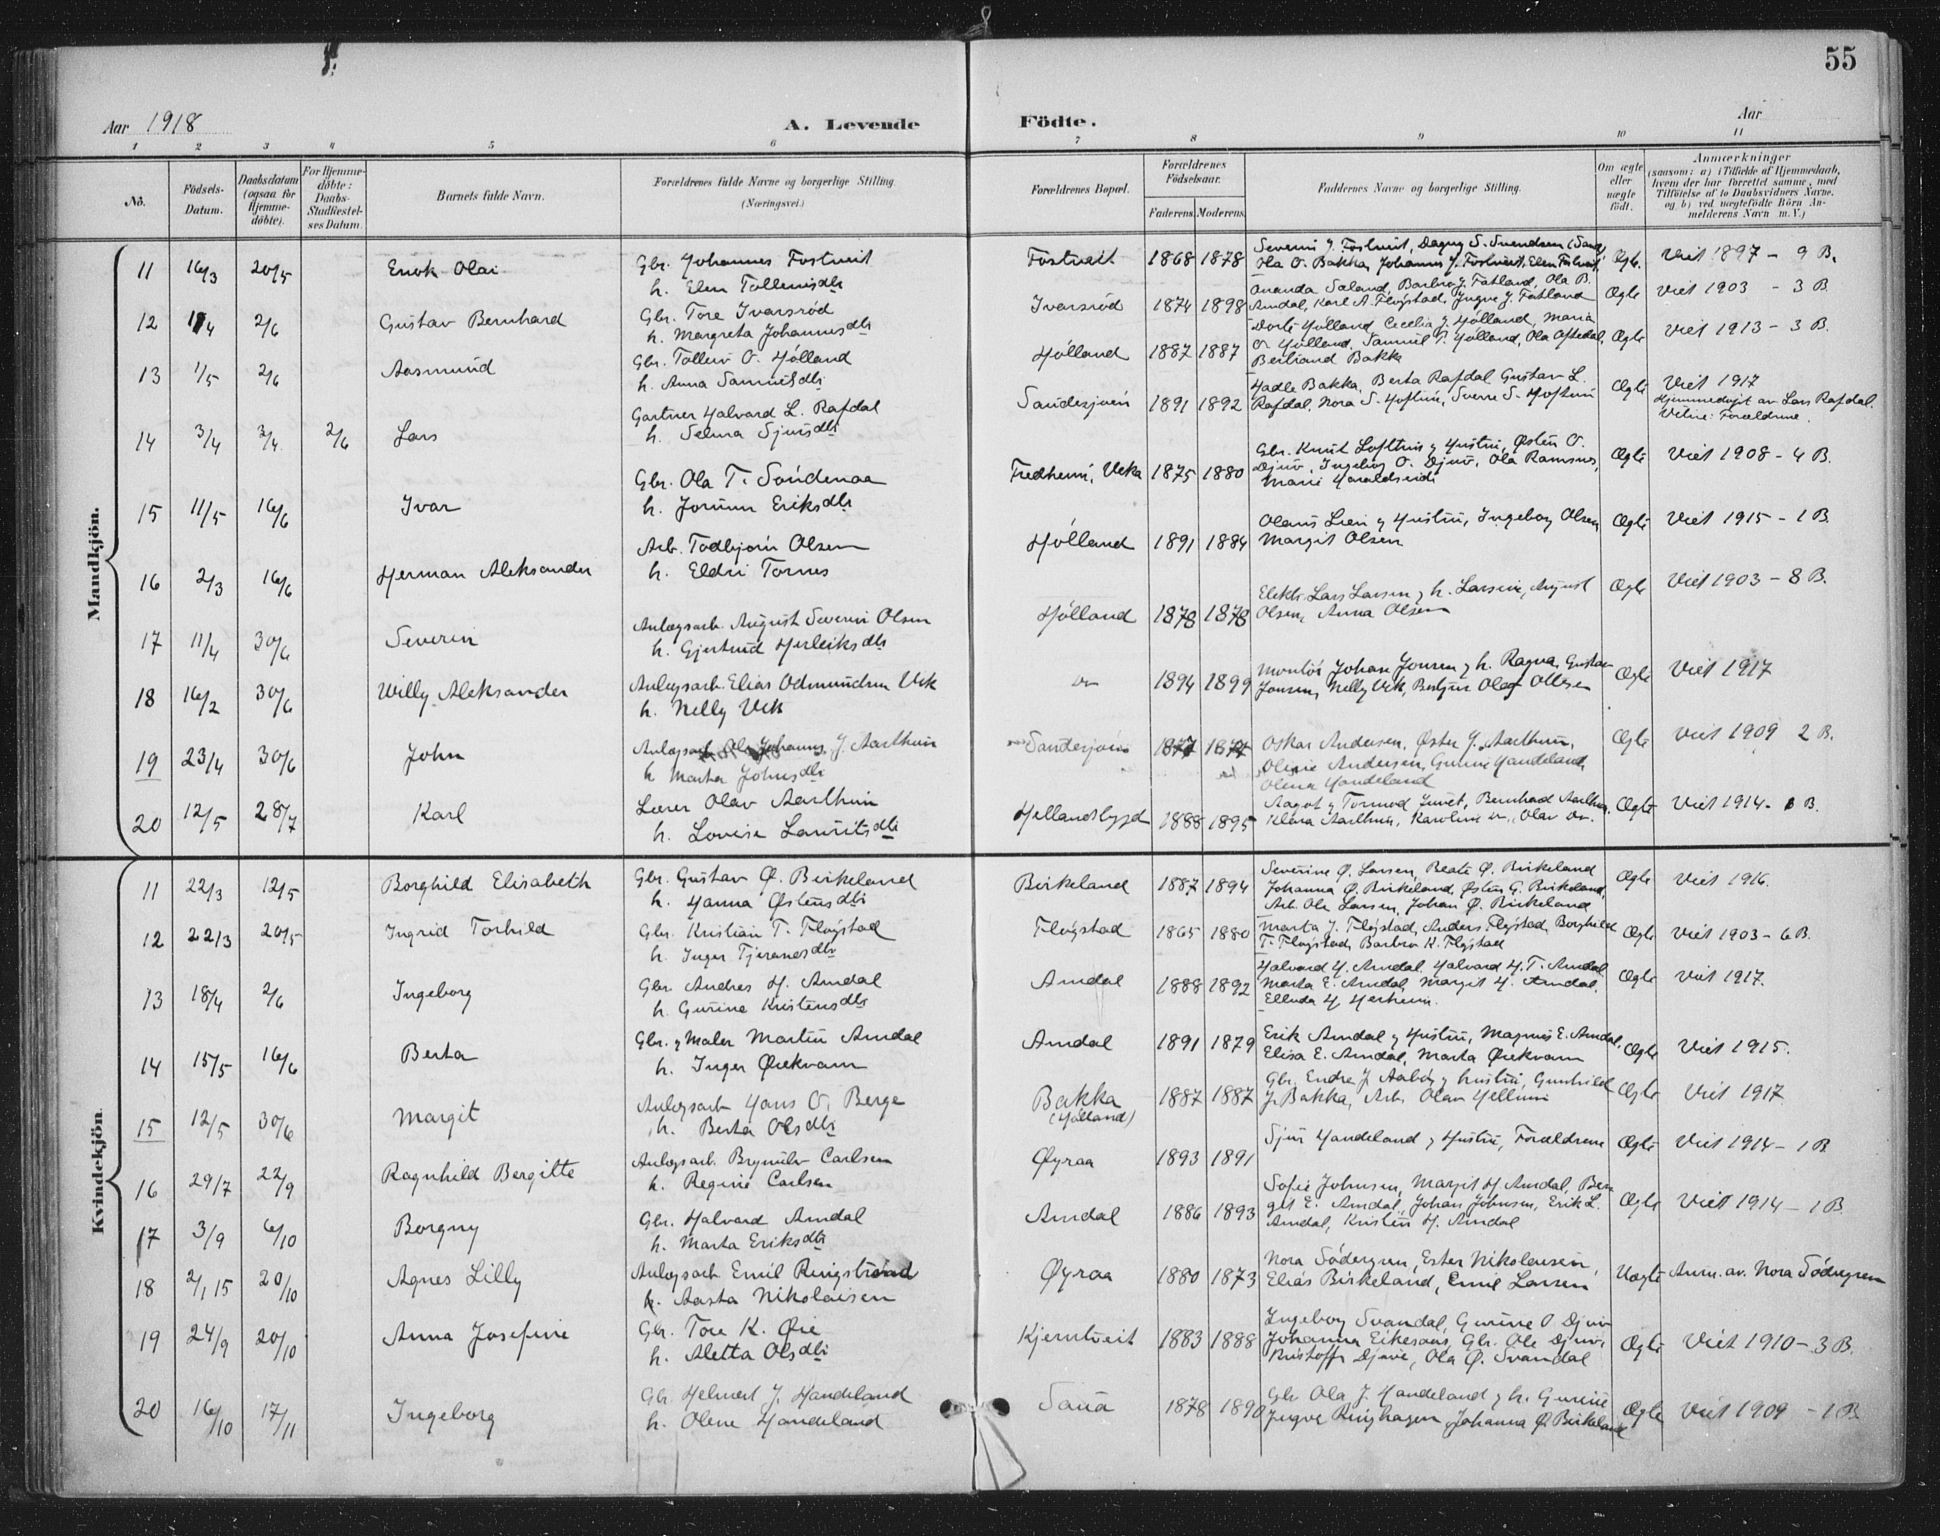 55
Aar 1918 A. Levende Födte. Aar
1 2 3 4 5 6 7 8 9 10 11
No. Födsels-Datum. Daabsdatum (ogsaa for Hjemme-döbte). For Hjemme-döbte: Daabs-Stadfæstel-ses Datum. Barnets fulde Navn. Forældrenes fulde Navne og borgerlige Stilling. (Næringsvei.) Forældrenes Bopæl. Forældrenes Födselsaar. Faderens. Moderens. Faddernes Navne og borgerlige Stilling. Om ægte eller uægte födt. Anmærkninger (saasom: a) i Tilfælde af Hjemmedaab, hvem der har forrettet samme, med Tilföielse af to Daabsvidners Navne, og b) ved uægtefödte Börn An-melderens Navn m. V.)
Mandkjön.
11 16/3 20/5 Enok Olai Gbr. Johannes Fostveit
h. Elen Tollevsdtr Fostveit 1868 1878 Severin J. Fostveit, Dagny S. Svendsen (Sand)
Ola O. Bakka, Johannes J. Fostveit, Elen Fostveit Ægte. Viet 1897 - 9 B.
12 1/4 2/6 Gustav Bernhard Gbr. Tore Ivarsrød
h. Margreta Johannesdtr Ivarsrød 1874 1898 Ananda Saland, Barbro J. Fatland, Ola B.
Amdal, Karl A. Fløgstad, Yngve J. Fatland Ægte Viet 1903 - 3 B.
13 1/5 2/6 Aasmund Gbr. Tolleiv O. Hólland
h. Anna Samuelsdtr Hólland 1887 1887 Dorte Hólland, Cecelia J. Hólland, Maria
O. Hólland, Samuel T. Hólland, Ola Oftedal,
Bertrand Bakka Ægte Viet 1913 - 3 B.
14 3/4 3/4 2/6 Lars Gartner Halvard L. Rafdal
h. Selma Sjursdtr Sandesjøen 1891 1892 Hadle Bakka, Berta Rafdal, Gustav L.
Rafdal, Nora S. Hoftun, Sverre S. Hoftun Ægte Viet 1917
Hjemmedøpt av Lars Rafdal.
Vitne: Forældrene.
15 11/5 16/6 Ivar Gbr. Ola T. Söndenaa
h. Jorunn Eriksdtr Fredheim, Vika 1875 1880 Gbr. Knut Lofthus y Hustru, Østen O.
Djuv, Ingeborg O. Djuv, Ola Ramsnes,
Marie Haraldseid Ægte Viet 1908 - 4 B.
16 2/3 16/6 Herman Aleksander Arb. Todbjørn Olsen
h. Eldri Tornes Hólland 1891 1884 Olaus Lien y Hustru, Ingeborg Olsen,
Margit Olsen Ægte Viet 1915 - 1 B.
17 11/4 30/6 Severin Anlægsarb. August Severin Olsen
h. Gjertrud Herleiksdtr Hólland 1878 1878 Elektr. Lars Larsen y h. Larsine, August
Olsen, Anna Olsen Ægte Viet 1903 - 8 B.
18 16/2 30/6 Willy Aleksander Anlægsarb. Elias Odmundsen Vik
h. Nelly Vik 1894 1899 Montör Johan Jonsen y h. Ragna, Gustav
Jonsen, Nelly Vik, Ægte Viet 1917
19 23/4 30/6 John Anlægsarb. Johannes J. Aarthun
h. Marta Johnsdtr Sandesjøen 1877 1877 Oskar Andersen, Øster J. Aarthun,
Olene Andersen, Gurine Handeland,
Olena Handeland Ægte Viet 1909 2 B.
20 12/5 28/7 Karl Lærer Olav Aarthun
h. Lovise Lauritsdtr Hellandsbygd 1888 1895 Aagot y Tormod Juvet, Bernhard Aarthun,
Klara Aarthun, Karoline do., Olav do. Ægte Viet 1914 - B.
Kvindekjön
11 22/3 12/5 Borghild Elisabeth Gbr. Gustav Ø. Birkeland
h. Hanna Østensdtr Birkeland 1887 1894 Severine Ø. Larsen, Beate Ø. Birkeland
Johanna Ø. Birkeland, Østen G. Birkeland,
Arb. Ole Larsen, Johan Ø. Birkeland Ægte Viet 1916.
12 22/3 20/5 Ingrid Torhild Gbr. Kristian T. Fløgstad
h. Inger Tjerandsdtr Fløgstad 1865 1880 Marta J. Fløgstad, Anders Fløgstad, Borghild
T. Fløgstad, Barbro K. Fløgstad Ægte Viet 1903 - 6 B.
13 18/4 2/6 Ingeborg Gbr. Andres H. Amdal
h. Gurine Kristensdtr Amdal 1888 1892 Halvard H. Amdal, Halvard H. T. Amdal,
Marta E. Amdal, Margit H. Amdal,
Ellenda H. Herheim. Ægte Viet 1917.
14 15/5 16/6 Berta Gbr. y Maler Martin Amdal
h. Inger Ørekvam Amdal 1891 1879 Erik Amdal y Hustru, Magnus E. Amdal,
Elisa E. Amdal, Marta Ørekvam Ægte Viet 1915.
15 12/5 30/6 Margit Anlægsarb. Hans O. Berge
h. Berta Olsdtr Bakka
(Hólland) 1887 1887 Gbr. Endre J. Aabø y hustru, Gunhild
J. Bakka, Arb. Olav Hellum Ægte Viet 1917
16 29/7 22/9 Ragnhild Bergitte Anlægsarb. Brynulv Carlsen
h. Regine Carlsen Øyraa 1893 1891 Sjur Handeland y Hustru, Forældrene Ægte Viet 1914 - 1 B
17 3/9 6/10 Borgny Gbr. Halvard Amdal
h. Marta Eriksdtr Amdal 1886 1893 Sofie Johnsen, Margit H. Amdal, Ber
git E. Amdal, Johan Johnsen, Erik L.
Amdal, Kristen H. Amdal Ægte Viet 1914 - 1 B
18 2/1 15 20/10 Agnes Lilly Anlægsarb. Emil Ringstrand
h. Aasta Nikolaisen Øyraa 1880 1873 Nora Södergren, Ester Nikolaisen,
Elias Birkeland, Emil Larsen Uægte Anm. av. Nora Södregren
19 24/9 20/10 Anna Josefine Gbr. Tore K. Øie
h. Aletta Olsdtr Kjerntveit 1883 1888 Ingeborg Svandal, Gurine O. Djuv
Johanna Eikesaas, Gbr. Ole Djuv,
Kristoffer Djuve, Ola Ø. Svandal Ægte Viet 1910 - 3 B.
20 16/10 17/11 Ingeborg Gbr. Helmert J. Handeland
h. Olene Handeland Saua 1878 1890 Gbr. Ola J. Handeland y h. Gurine
Yngve Ringhagen, Johanna Ø. Birkeland Ægte Viet 1909 - 1 B